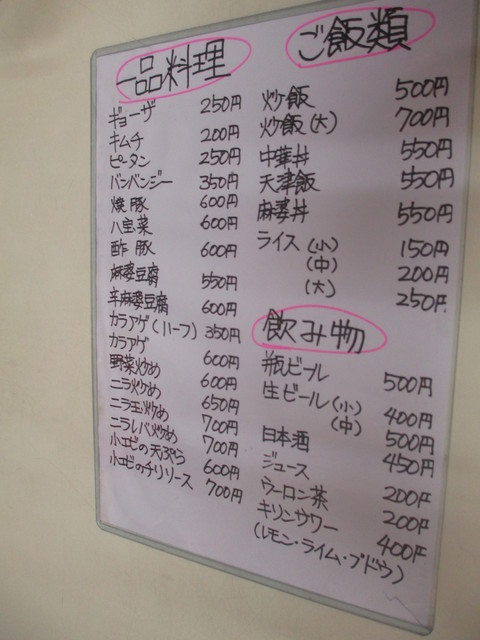 一品料理
ギョーザ 250円
キムチ 200円
ピータン 250円
バンバンジー 350円
焼豚 600円
八宝菜 600円
酢豚 600円
麻婆豆腐 550円
辛麻婆豆腐 600円
カラアゲ(ハーフ) 350円
カラアゲ 600円
野菜炒め 600円
ニラ炒め 650円
ニラ玉炒め 700円
ニラレバ炒め 700円
小エビの天ぷら 600円
小エビのチリソース 700円
ご飯類
炒飯 500円
炒飯(大) 700円
中華丼 550円
天津飯 550円
麻婆丼 550円
ライス(小) 150円
(中) 200円
(大) 250円
飲み物
瓶ビール 500円
生ビール(小) 400円
(中) 500円
日本酒 450円
ジュース 200円
ウーロン茶 200円
キリンサワー 400円
(レモン・ライム・ブドウ)